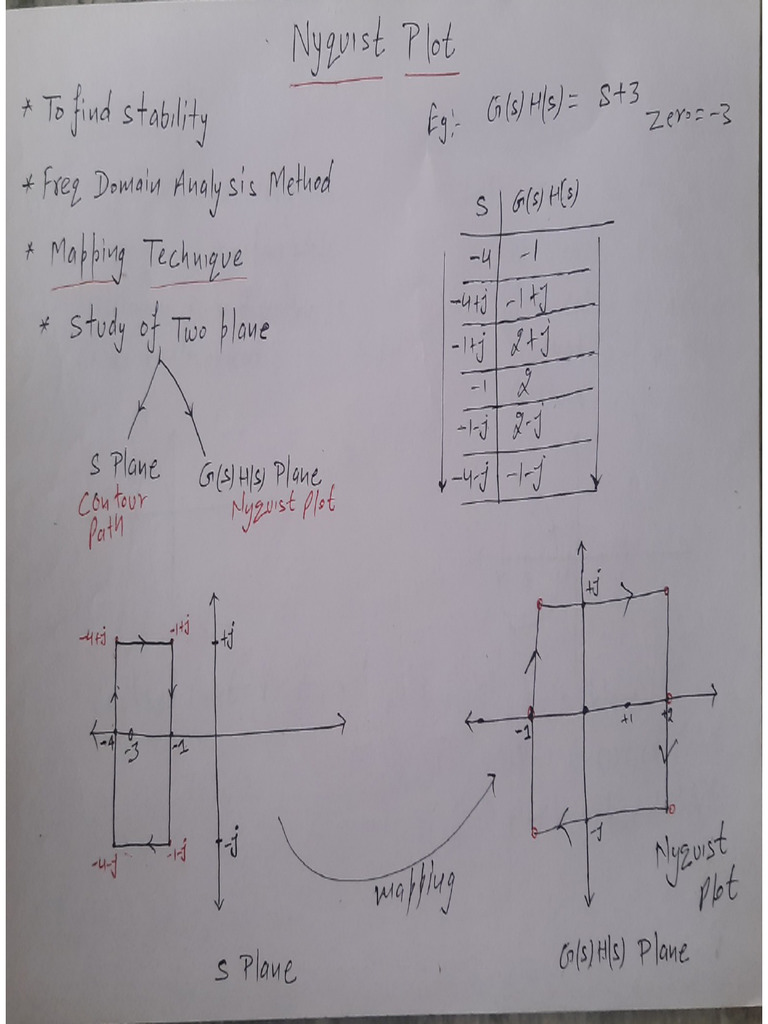 Nyquist Plot
* To find stability
* Freq Domain Analysis Method
* Mapping Technique
* Study of Two plane
S Plane
Contour
Path
G(s)H(s) Plane
Nyquist Plot
Eg:- G(s)H(s) = S+3
Zero=-3
S G(s)H(s)
-4 -1
-4+j -1+j
-1+j 2+j
-1 2
-1-j 2-j
-4-j -1-j
-4+j -1+j +j
-4 -3 -1
-4-j -1-j -j
S Plane
mapping
+j
-1 +1 +2
-j
Nyquist
Plot
G(s)H(s) Plane